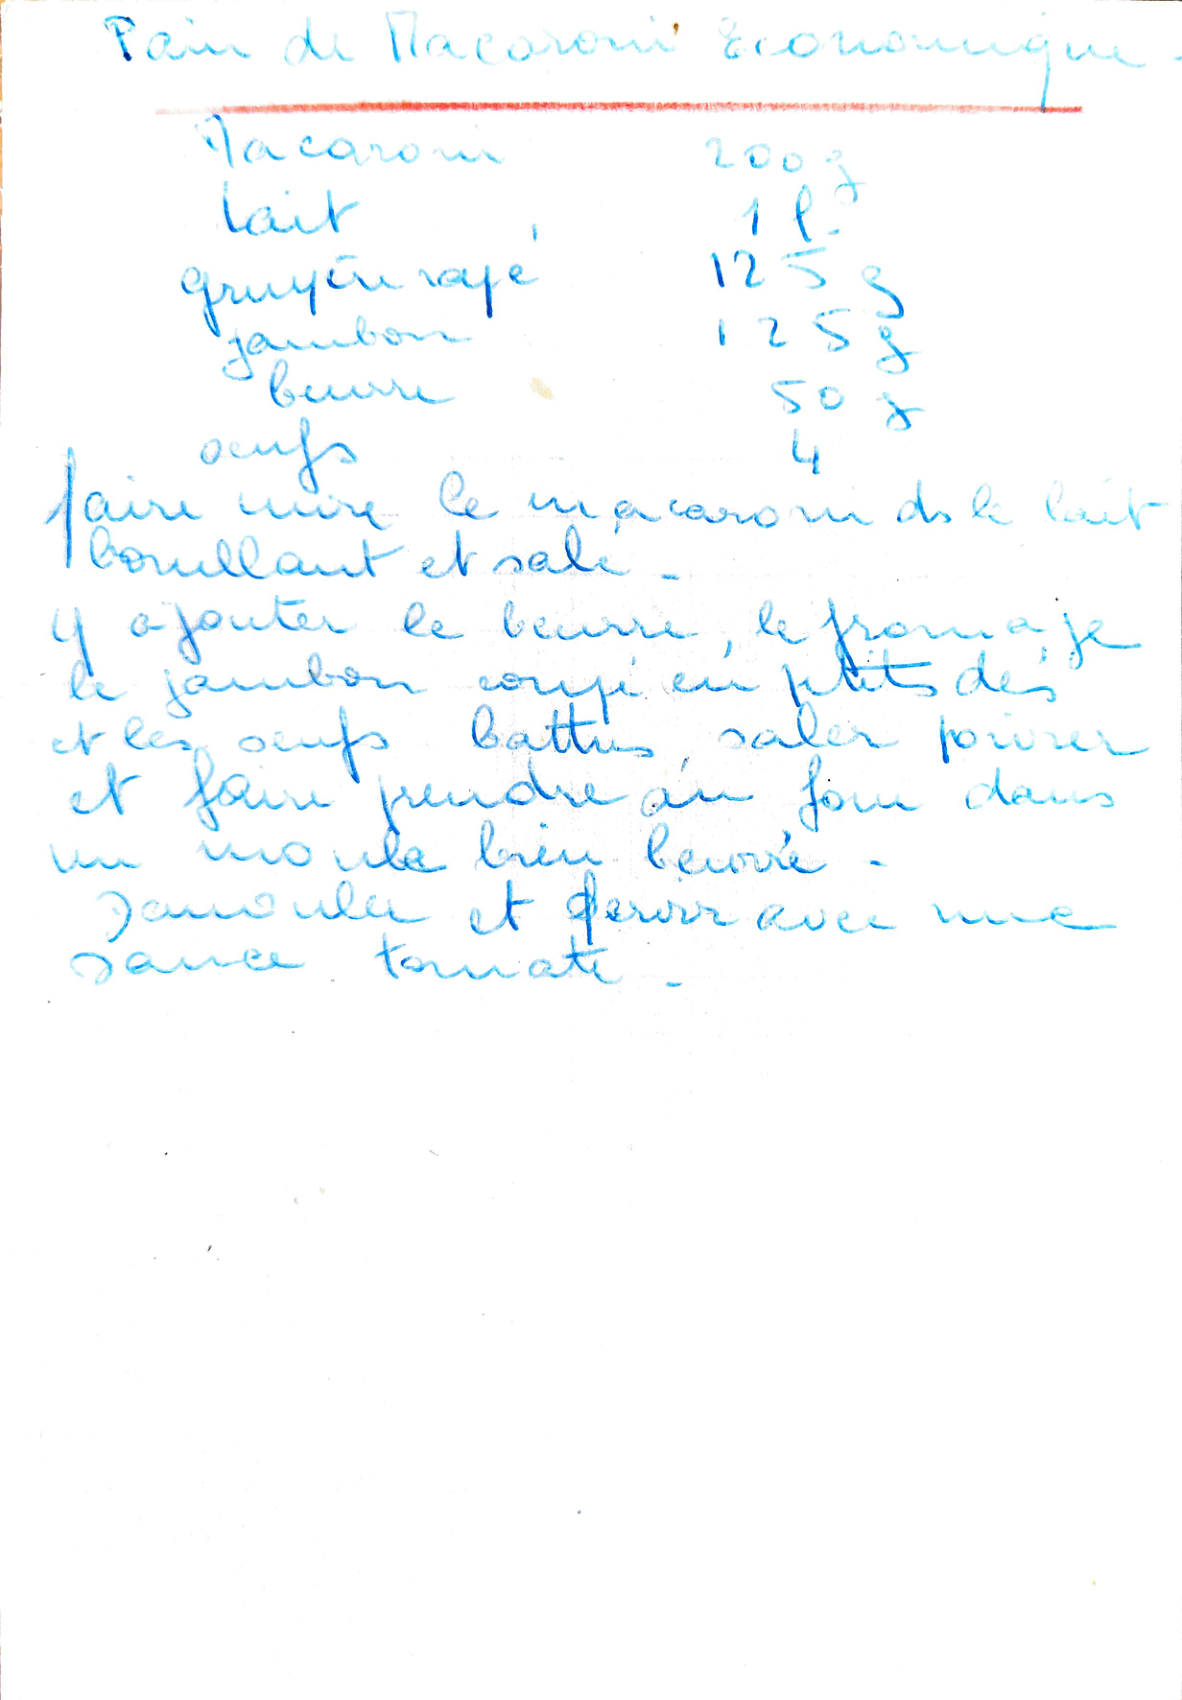 Pain de Macaroni Economique -
Macaroni 200 g
lait 1 l.
gruyère rapé 125 g
jambon 125 g
beurre 50 g
oeufs 4
faire cuire le macaroni ds le lait
bouillant et salé -
y ajouter le beurre, le fromage
le jambon coupé en petits dés
et les oeufs battus, saler poivrer
et faire prendre au four dans
un moule bien beurré -
Démouler et servir avec une
sauce tomate -